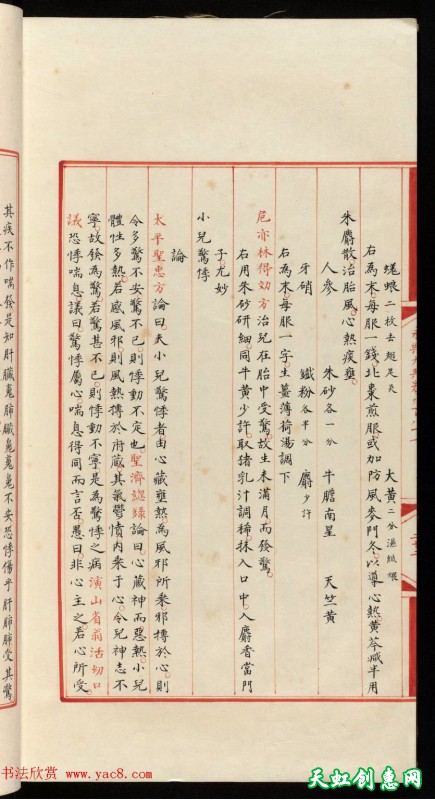 蜣蜋二枚去翅足炙 大黃二分濕紙煨
右為末每服一錢北棗煎服或加防風麥門冬以導心熱黃芩減半用
朱麝散治胎風心熱痰壅
人參 朱砂各一分 牛膽南星 天竺黃
牙硝 鐵粉各半分 麝少許
右為末每服一字生薑薄荷湯調下
危亦林得効方治兒在胎中受驚故生未滿月而發驚
右用朱砂研細同牛黃少許取猪乳汁調稀抹入口中入麝香當門
子尤妙
小兒驚悸
論
太平聖惠方論曰夫小兒驚悸者由心藏壅熱為風邪所乘邪摶於心則
令多驚不安驚不已則悸動不定也聖濟總録論曰心藏神而惡熱小兒
體性多熱若感風邪則風熱摶於府藏其氣鬱憤内乘于心令兒神志不
寧故發為驚若驚甚不已則悸動不寧是為驚悸之病演山省翁活幼口
議恐悸喘息議曰驚悸屬心喘息得同而言否愚曰非心主之若心所受
其疾不作喘發是知肝臟嵬肺臟嵬嵬嵬不安恐悸傷乎肝肺肺受其驚
书法欣赏 www.yac8.com
天虹创惠网